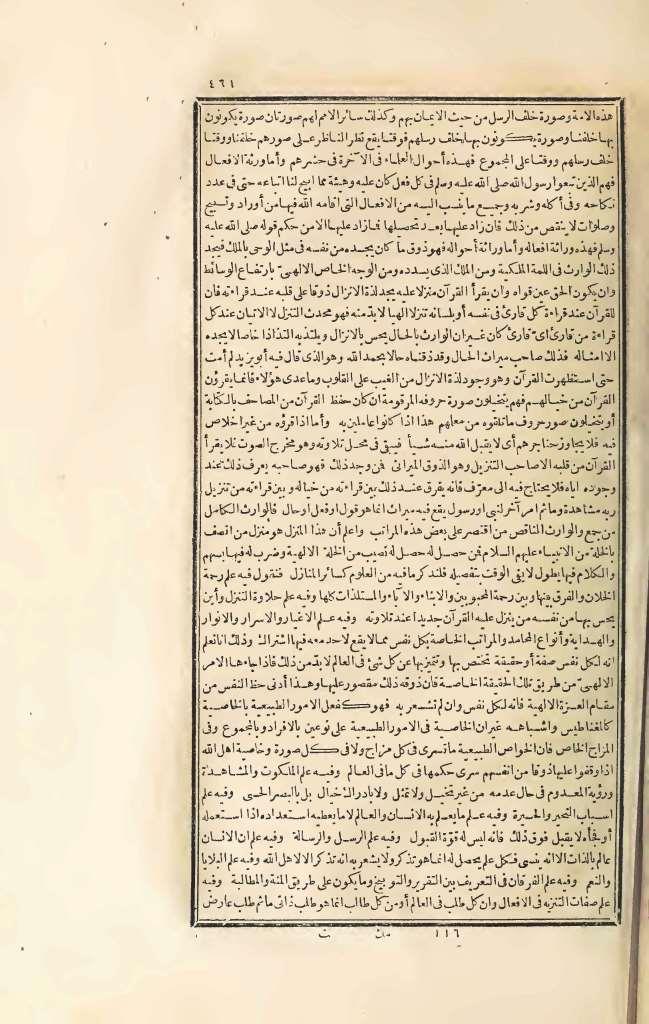 ٤٦١
هذه الامة وصورة خلف الرسل من حيث الايمان بهم وكذلك سائر الامم لهم صورتان صورة يكونون
بها خلفنا وصورة يكونون بها خلف رسلهم فوقتا يقع نظر الناظر على صورهم خلفنا ووقتا
خلف رسلهم ووقتا على المجموع فهذه أحوال العلماء فى الآخرة فى حشرهم وأما ورثة الافعال
فهم الذين تبعوا رسول الله صلى الله عليه وسلم فى كل فعل كان عليه وهيئة مما ابيح لنا اتباعه حتى فى عدد
نكاحه وفى أكله وشربه وجميع ما ينسب اليه من الافعال التى أقامه الله فيها من أوراد وتسبيح
وصلوات لا ينقص من ذلك فان زاد عليها بعد تحصيلها فما زاد عليها الا من حكم قوله صلى الله عليه
وسلم فهذه وراثة افعاله وأما وراثة أحواله فهو ذوق ما كان يجده من نفسه فى مثل الوحى بالملك فيجد
ذلك الوارث فى اللمة الملكية ومن الملك الذى يسدده ومن الوجه الخاص الالهىّ بارتفاع الوسائط
وان يكون الحق عين قواه وان يقرأ القرآن منزلا عليه يجد لذة الانزال ذوقا على قلبه عند قراءته فان
للقرآن عند قراءة كل قارئ فى نفسه أو بلسانه تنزلا الهيا لا بد منه فهو محدث التنزل والاتيان عند كل
قراءة من قارئ اىّ قارئ كان غير ان الوارث بالحال يحس بالانزال ويلتذ به التذاذا خاصا لا يجده
الا امثاله فذلك صاحب ميراث الحال وقد ذقناه حالا بحمد الله وهو الذى قال فيه أبو يزيد لم أمت
حتى استظهرت القرآن وهو وجود لذة الانزال من الغيب على القلوب وما عدى هؤلاء فانما يقرؤن
القرآن من خيالهم فهم يتخيلون صورة حروفه المرقومة ان كان حفظ القرآن من المصاحف بالكتابة
أو يتخيلون صور حروف ما تلقوه من معلمهم هذا اذا كانوا عاملين به وأما اذا قرؤه من غير اخلاص
فيه فلا يجاوز حناجرهم أى لا يقبل الله منه شيأ فيبقى فى محل تلاوته وهو مخرج الصوت فلا يقرأ
القرآن من قلبه الا صاحب التنزيل وهو الذوق الميراثى فمن وجد ذلك فهو صاحبه يعرف ذلك عند
وجوده اياه فلا يحتاج فيه الى معرّف فانه يفرق عند ذلك بين قراءته من خياله وبين قراءته من تنزيل
ربه مشاهدة وما ثم امر آخر لنبى أو رسول يقع فيه ميراث انما هو قول أو فعل أو حال فالوارث الكامل
من جمع والوارث الناقص من اقتصر على بعض هذه المراتب واعلم أن هذا المنزل هو منزل من اتصف
بالخلة من الانبياء عليهم السلام فمن حصل له حصل له نصيب من الخلة الالهية وضرب له فيها بسهم
والكلام فيها يطول لا يفى الوقت بتفصيله فلنذكر ما فيه من العلوم كسائر المنازل فنقول فيه علم رحمة
الخلان والفرق بينها وبين رحمة المحبوبين والابناء والآباء والمستلذات كلها وفيه علم حلاوة التنزل وأين
يحس بها من نفسه من ينزل عليه القرآن جديدا عند تلاوته وفيه علم الاغيار والاسرار والانوار
والهداية وأنواع المحامد والمراتب الخاصة بكل نفس مما لا يقع لاحد معه فيها اشتراك وذلك انا نعلم
انه لكل نفس صفة أو حقيقة تختص بها وتتميز بها عن كل شئ فى العالم لا بدّ من ذلك فاذا جاءها الامر
الالهىّ من طريق تلك الحقيقة الخاصة فان ذوقه ذلك مقصور عليها وهذا أدنى حظ النفس من
مقام العزة الالهية فانه لكل نفس وان لم تشعر به فهو كفعل الامور الطبيعية بالخاصية
كالمغناطيس واشباهه غير ان الخاصية فى الامور الطبيعية على نوعين بالافراد وبالمجموع وفى
المزاج الخاص فان الخواص الطبيعية ما تسرى فى كل مزاج ولا فى كل صورة وخاصية اهل الله
اذا وقفوا عليها ذوقا من انفسهم سرى حكمها فى كل ما فى العالم وفيه علم الملكوت والمشاهدة
ورؤية المعدوم فى حال عدمه من غير تخيل ولا تمثل ولا ادراك خيال بل بالبصر الحسى وفيه علم
اسباب التحير والحيرة وفيه علم ما يعلم به الانسان والعالم لا ما يعطيه استعداده اذا استعمله
أو فجأه لا يقبل فوق ذلك فانه ليس له قوّة القبول وفيه علم الرسل والرسالة وفيه علم ان الانسان
عالم بالذات الا انه ينسى فكل علم يحصل له انما هو تذكر ولا يشعر به انه تذكر الا اهل الله وفيه علم البلايا
والنعم وفيه علم الفرقان فى التعريف بين التقرير والتوبيخ وما يكون على طريق المنة والمطالبة وفيه
علم صفات التنزيه فى الافعال وان كل طلب فى العالم أو من كل طالب انما هو طلب ذاتى ما ثم طلب عارض
١١٦ مك ت